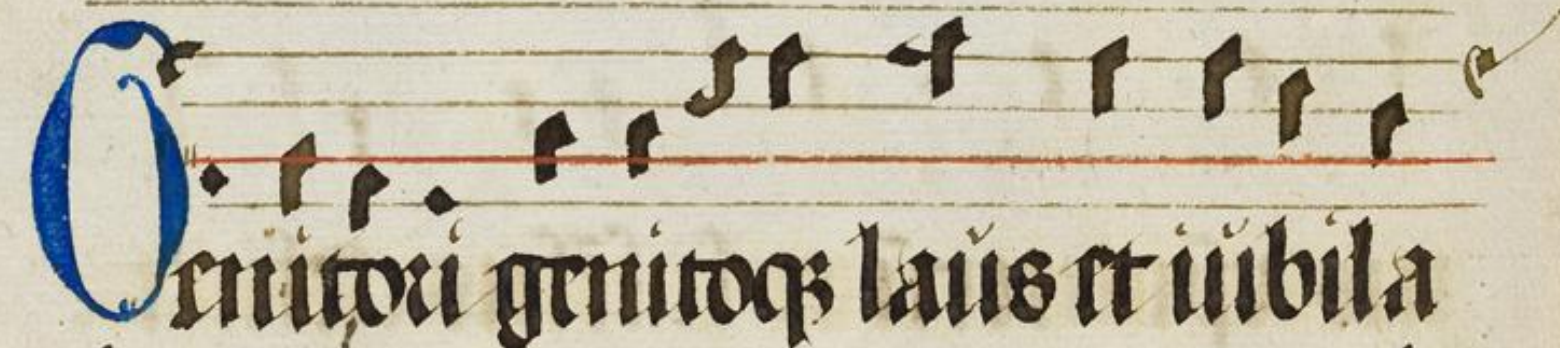 Genitori genitoqꝫ laus et iubila